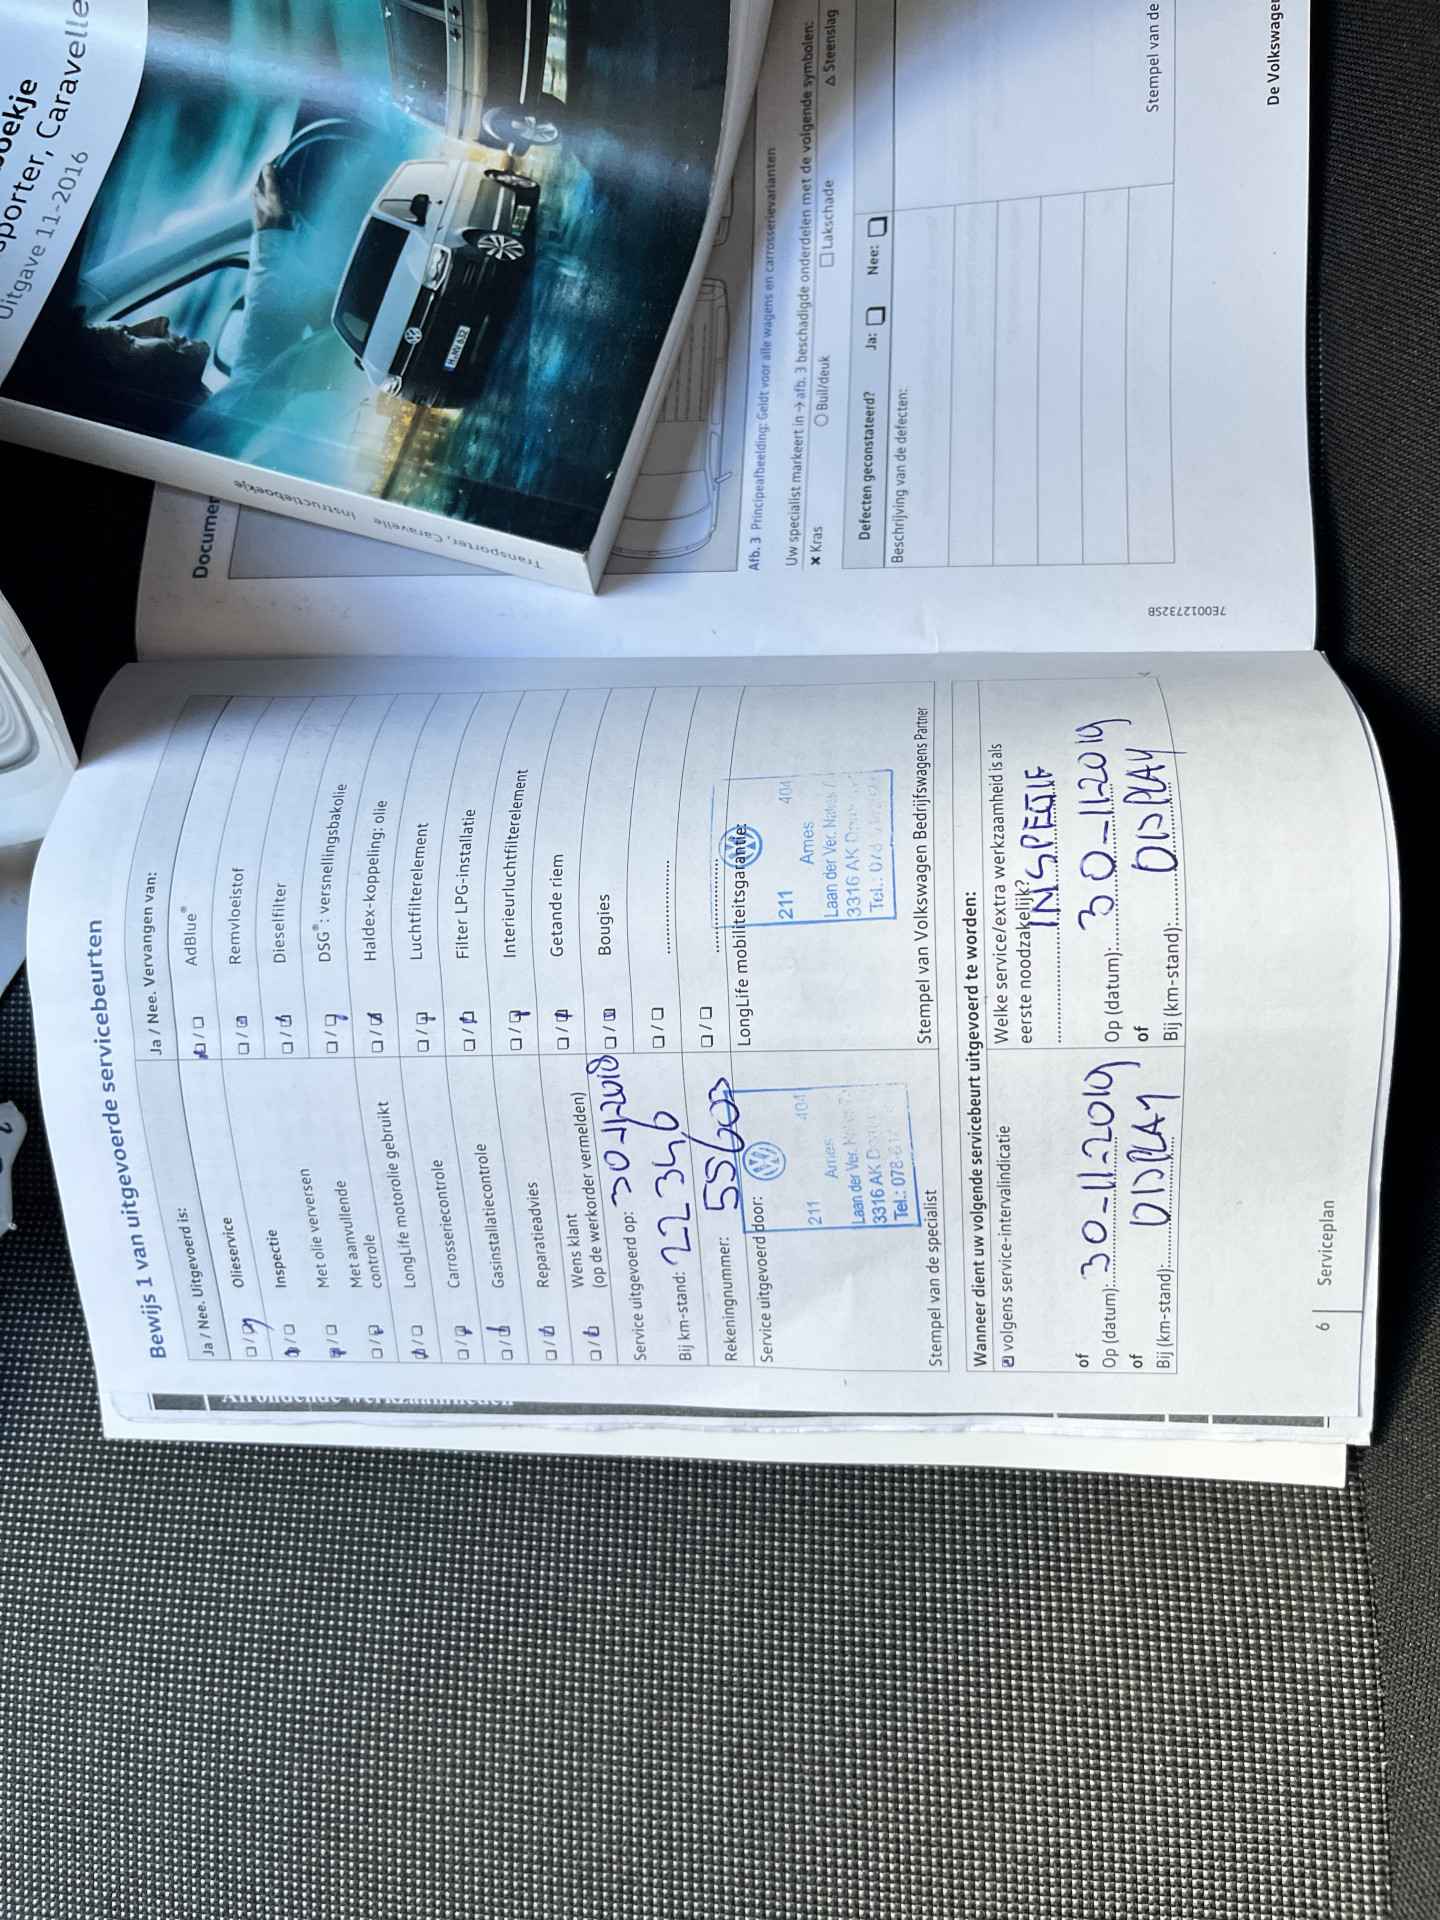 Bewijs 1 van uitgevoerde servicebeurten
Ja / Nee. Uitgevoerd is:
Olieservice
Inspectie
Met olie verversen
Met aanvullende
controle
LongLife motorolie gebruikt
Carrosseriecontrole
Gasinstallatiecontrole
Reparatieadvies
Wens klant
(op de werkorder vermelden)
Service uitgevoerd op: 30-11-2018
Bij km-stand: 22346
Rekeningnummer: 55603
Service uitgevoerd door:
211
404
Ames
Laan der Ver.
3316 AK
Tel.: 078-6
Stempel van de specialist
Ja / Nee. Vervangen van:
AdBlue®
Remvloeistof
Dieselfilter
DSG®: versnellingsbakolie
Haldex-koppeling: olie
Luchtfilterelement
Filter LPG-installatie
Interieurluchtfilterelement
Getande riem
Bougies
LongLife mobiliteitsgarantie:
211
404
Ames
Laan der Ver.
3316 AK
Tel.: 078
Stempel van Volkswagen Bedrijfswagens Partner
Wanneer dient uw volgende servicebeurt uitgevoerd te worden:
volgens service-intervalindicatie
of
Op (datum): 30-11-2019
of
Bij (km-stand): DISPLAY
Welke service/extra werkzaamheid is als
eerste noodzakelijk?
INSPECTIE
Op (datum): 30-11-2019
of
Bij (km-stand): DISPLAY
6 | Serviceplan
Afb. 3 Principeafbeelding: Geldt voor alle wagens en carrosserievarianten
Uw specialist markeert in → afb. 3 beschadigde onderdelen met de volgende symbolen:
✖ Kras ○ Buil/deuk □ Lakschade △ Steenslag
Defecten geconstateerd? Ja: □ Nee: □
Beschrijving van de defecten:
Stempel van de
De Volkswagen
7E0012732SB
Uitgave 11-2016
Transporter, Caravelle Instructieboekje
H·NF 632